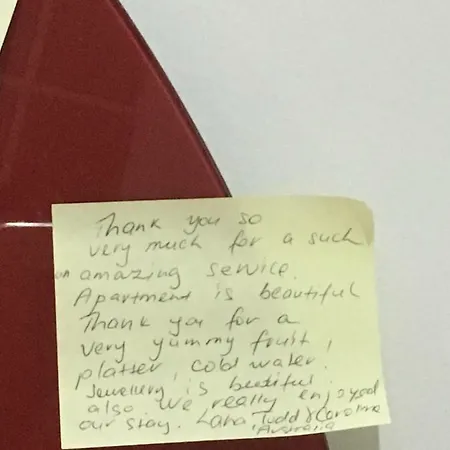 Thank you so
very much for a such
an amazing service.
Apartment is beautiful
Thank you for a
very yummy fruit,
platter, cold water.
Jewellery is beutiful.
also we really enjoyed
our stay. Lana Todd & Caroline
Australia